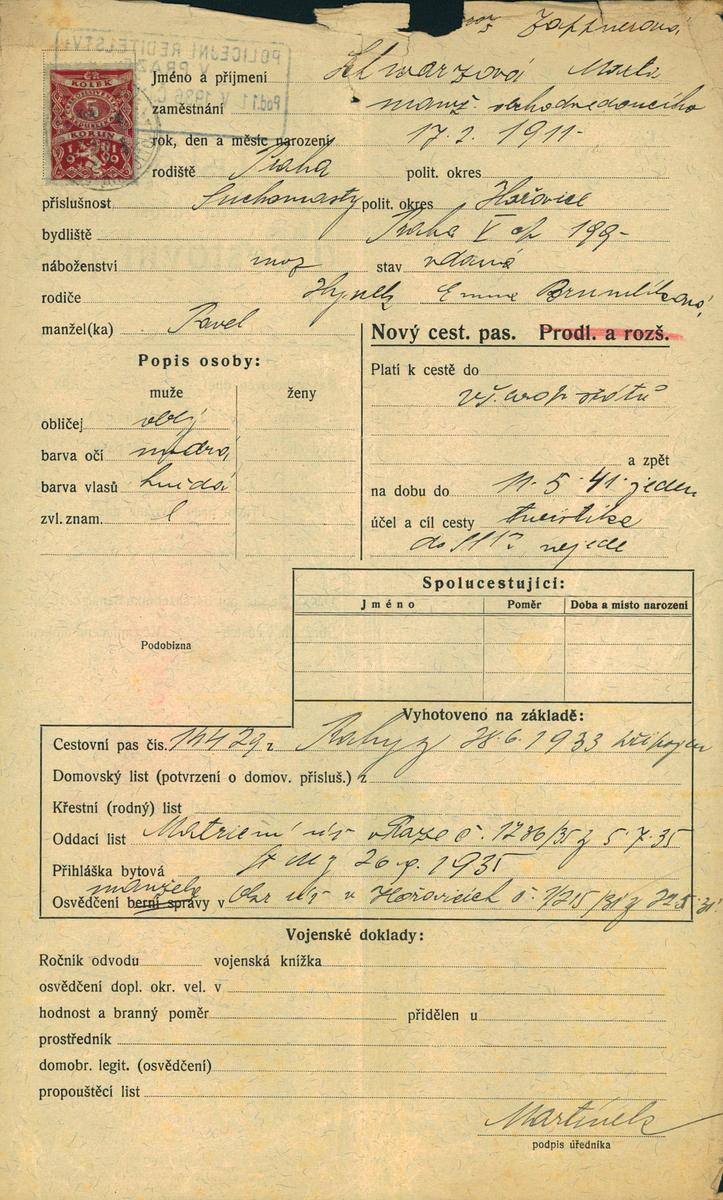 Jméno a příjmení Marta
zaměstnání manž. obchodvedoucího
rok, den a měsíc narození 17. 2. 1911
rodiště Praha polit. okres
příslušnost Suchomasty polit. okres Hořovice
bydliště Praha V čp 199-
náboženství moz stav vdaná
rodiče Hynek Emma
manžel(ka) Pavel
Nový cest. pas. Prodl. a rozš.
Popis osoby:
muže ženy
obličej
barva očí modrá
barva vlasů hnědá
zvl. znam.
Platí k cestě do
vš. evop. států
a zpět
na dobu do 11. 5. 41.
účel a cíl cesty turistika
do nejede
Spolucestující:
Jméno Poměr Doba a místo narození
Podobizna
Vyhotoveno na základě:
Cestovní pas čís. 28. 6. 1933
Domovský list (potvrzení o domov. přísluš.) z
Křestní (rodný) list
Oddací list Matriční úř. v Praze č. 1286/35 z 5. 7. 35
Přihláška bytová 1935
manžela
Osvědčení berní správy v Okr úř. v Hořovicích č.
Vojenské doklady:
Ročník odvodu vojenská knížka
osvědčení dopl. okr. vel. v
hodnost a branný poměr přidělen u
prostředník
domobr. legit. (osvědčení)
propouštěcí list
Martínek
podpis úředníka
KOLEK
5
KORUN
1919
POLICEJNÍ ŘEDITELSTVÍ
V PRAZE